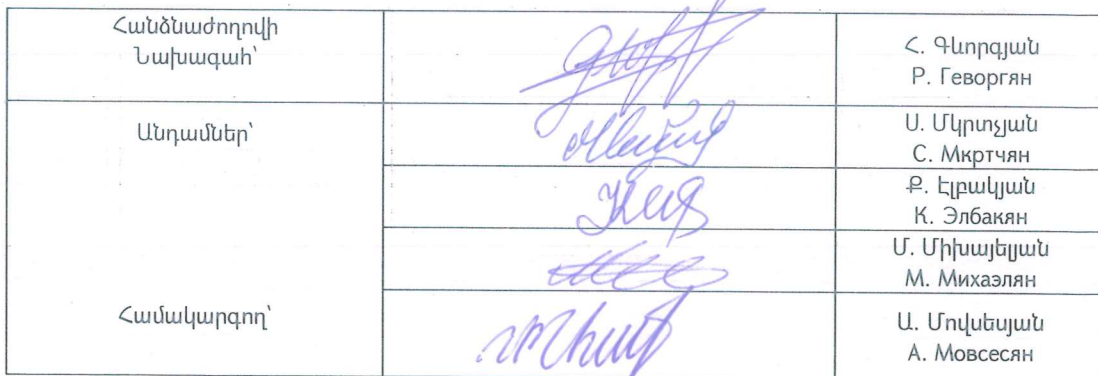 Հանձնաժողովի
Նախագահ՝
Հ. Գևորգյան
Р. Геворгян
Անդամներ՝
Ս. Մկրտչյան
С. Мкртчян
Ք. Էլբակյան
К. Элбакян
Մ. Միխայելյան
М. Михаэлян
Համակարգող՝
Ա. Մովսեսյան
А. Мовсесян